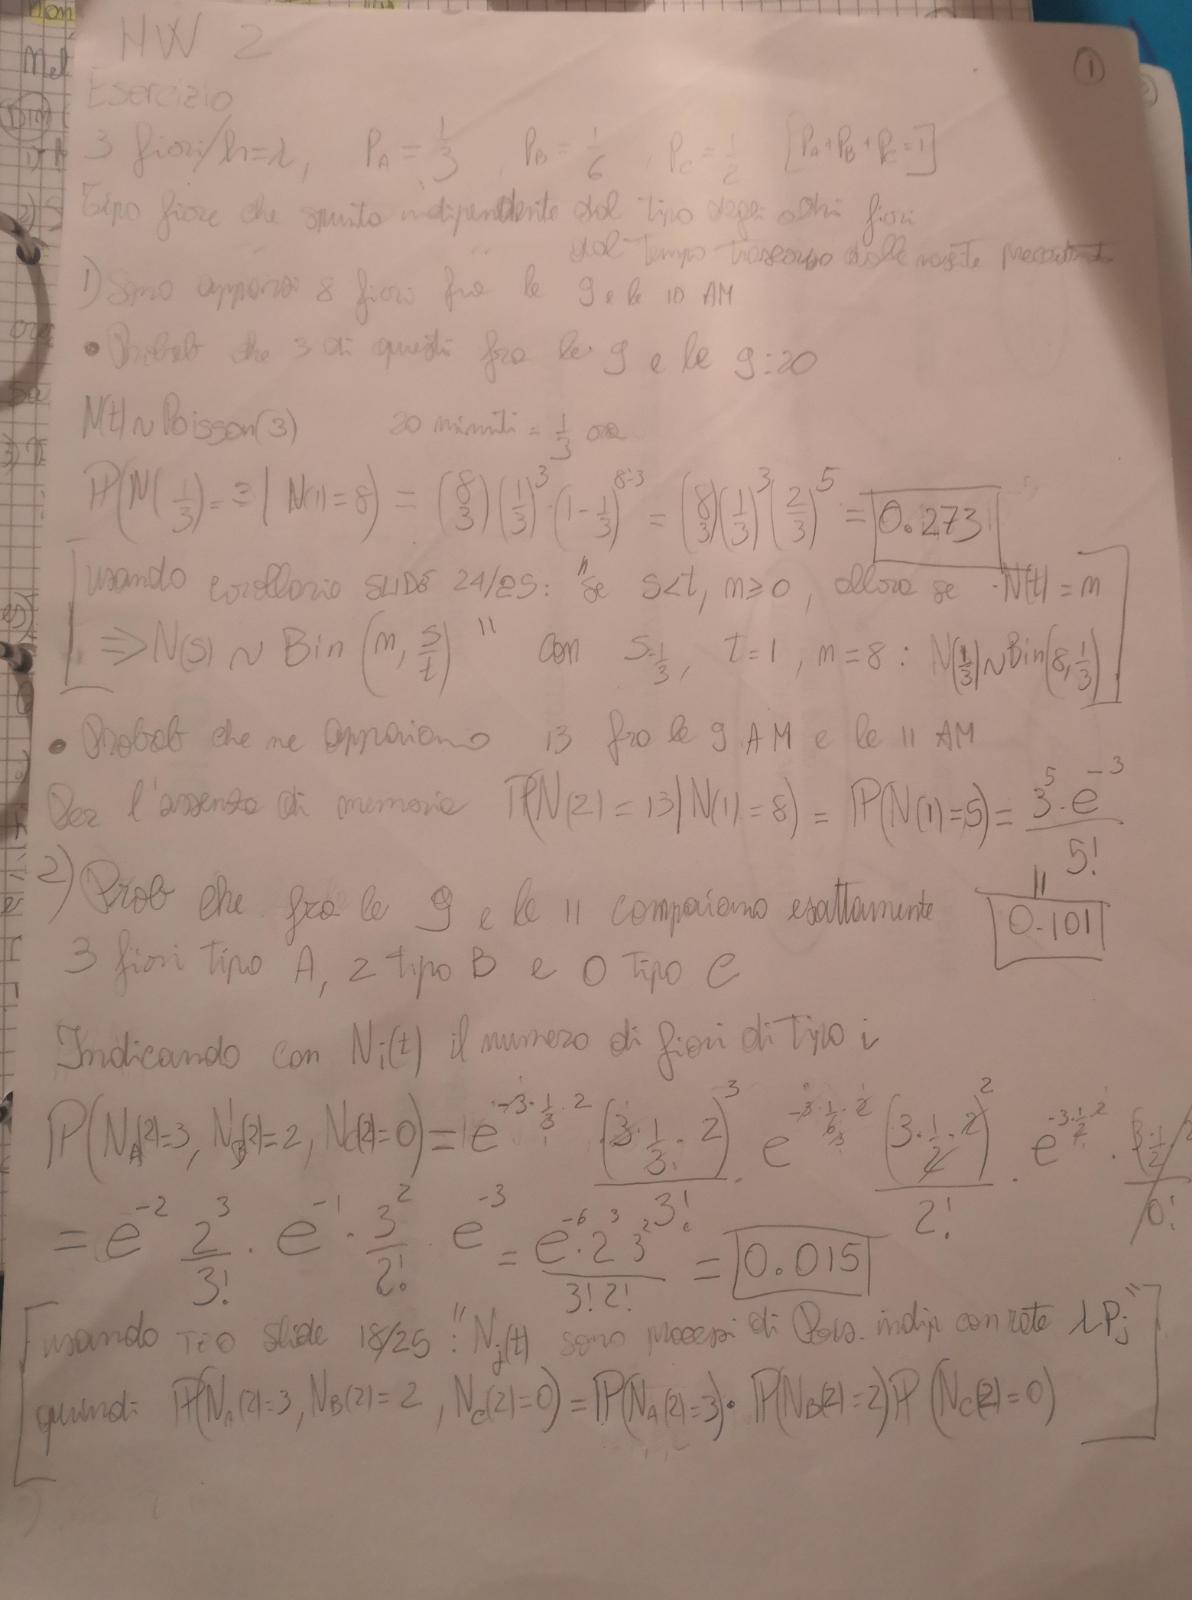 HW 2
①
Esercizio
3 fiori/h=λ, P_A = 1/3 P_B = 1/6, P_C = 1/2 [P_A+P_B+P_C=1]
Tipo fiore che spunta indipendente dal tipo degli altri fiori
dal tempo trascorso dalle nascite precedenti
1) Sono apparsi 8 fiori fra le 9 e le 10 AM
• Probab che 3 di questi fra le 9 e le 9:20
N(t)~Poisson(3) 20 minuti = 1/3 ora
P(N(1/3)=3 | N(1)=8) = (8 3)(1/3)^3·(1-1/3)^8-3 = (8 3)(1/3)^3(2/3)^5 = 0.273
[usando corollario SLIDE 24/25: "se s<t, m≥0, allora se N(t)=m
⇒ N(s) ~ Bin(m, s/t)" con s=1/3, t=1, m=8: N(1/3)~Bin(8,1/3)]
• Probab che ne appaiano 13 fra le 9 AM e le 11 AM
Per l'assenza di memoria P(N(2)=13|N(1)=8) = P(N(1)=5) = 3^5·e^-3/5!
= 0.101
2) Prob che fra le 9 e le 11 compaiano esattamente
3 fiori tipo A, 2 tipo B e 0 tipo C
Indicando con N_i(t) il numero di fiori di tipo i
P(N_A(2)=3, N_B(2)=2, N_C(2)=0) = e^-3·1/3·2 (3·1/3·2)^3/3! · e^-3·1/6·2 (3·1/2·2)^2/2! · e^-3·1/2·2 · (3·1/2·2/0!
= e^-2 2^3/3! · e^-1 · 3^2/2! · e^-3 = e^-6·2^3 3^2/3!2! = 0.015
[usando TEO slide 18/25: "N_j(t) sono processi di Pois. indip con rate λP_j"
quindi P(N_A(2)=3, N_B(2)=2, N_C(2)=0) = P(N_A(2)=3)·P(N_B(2)=2)P(N_C(2)=0)]